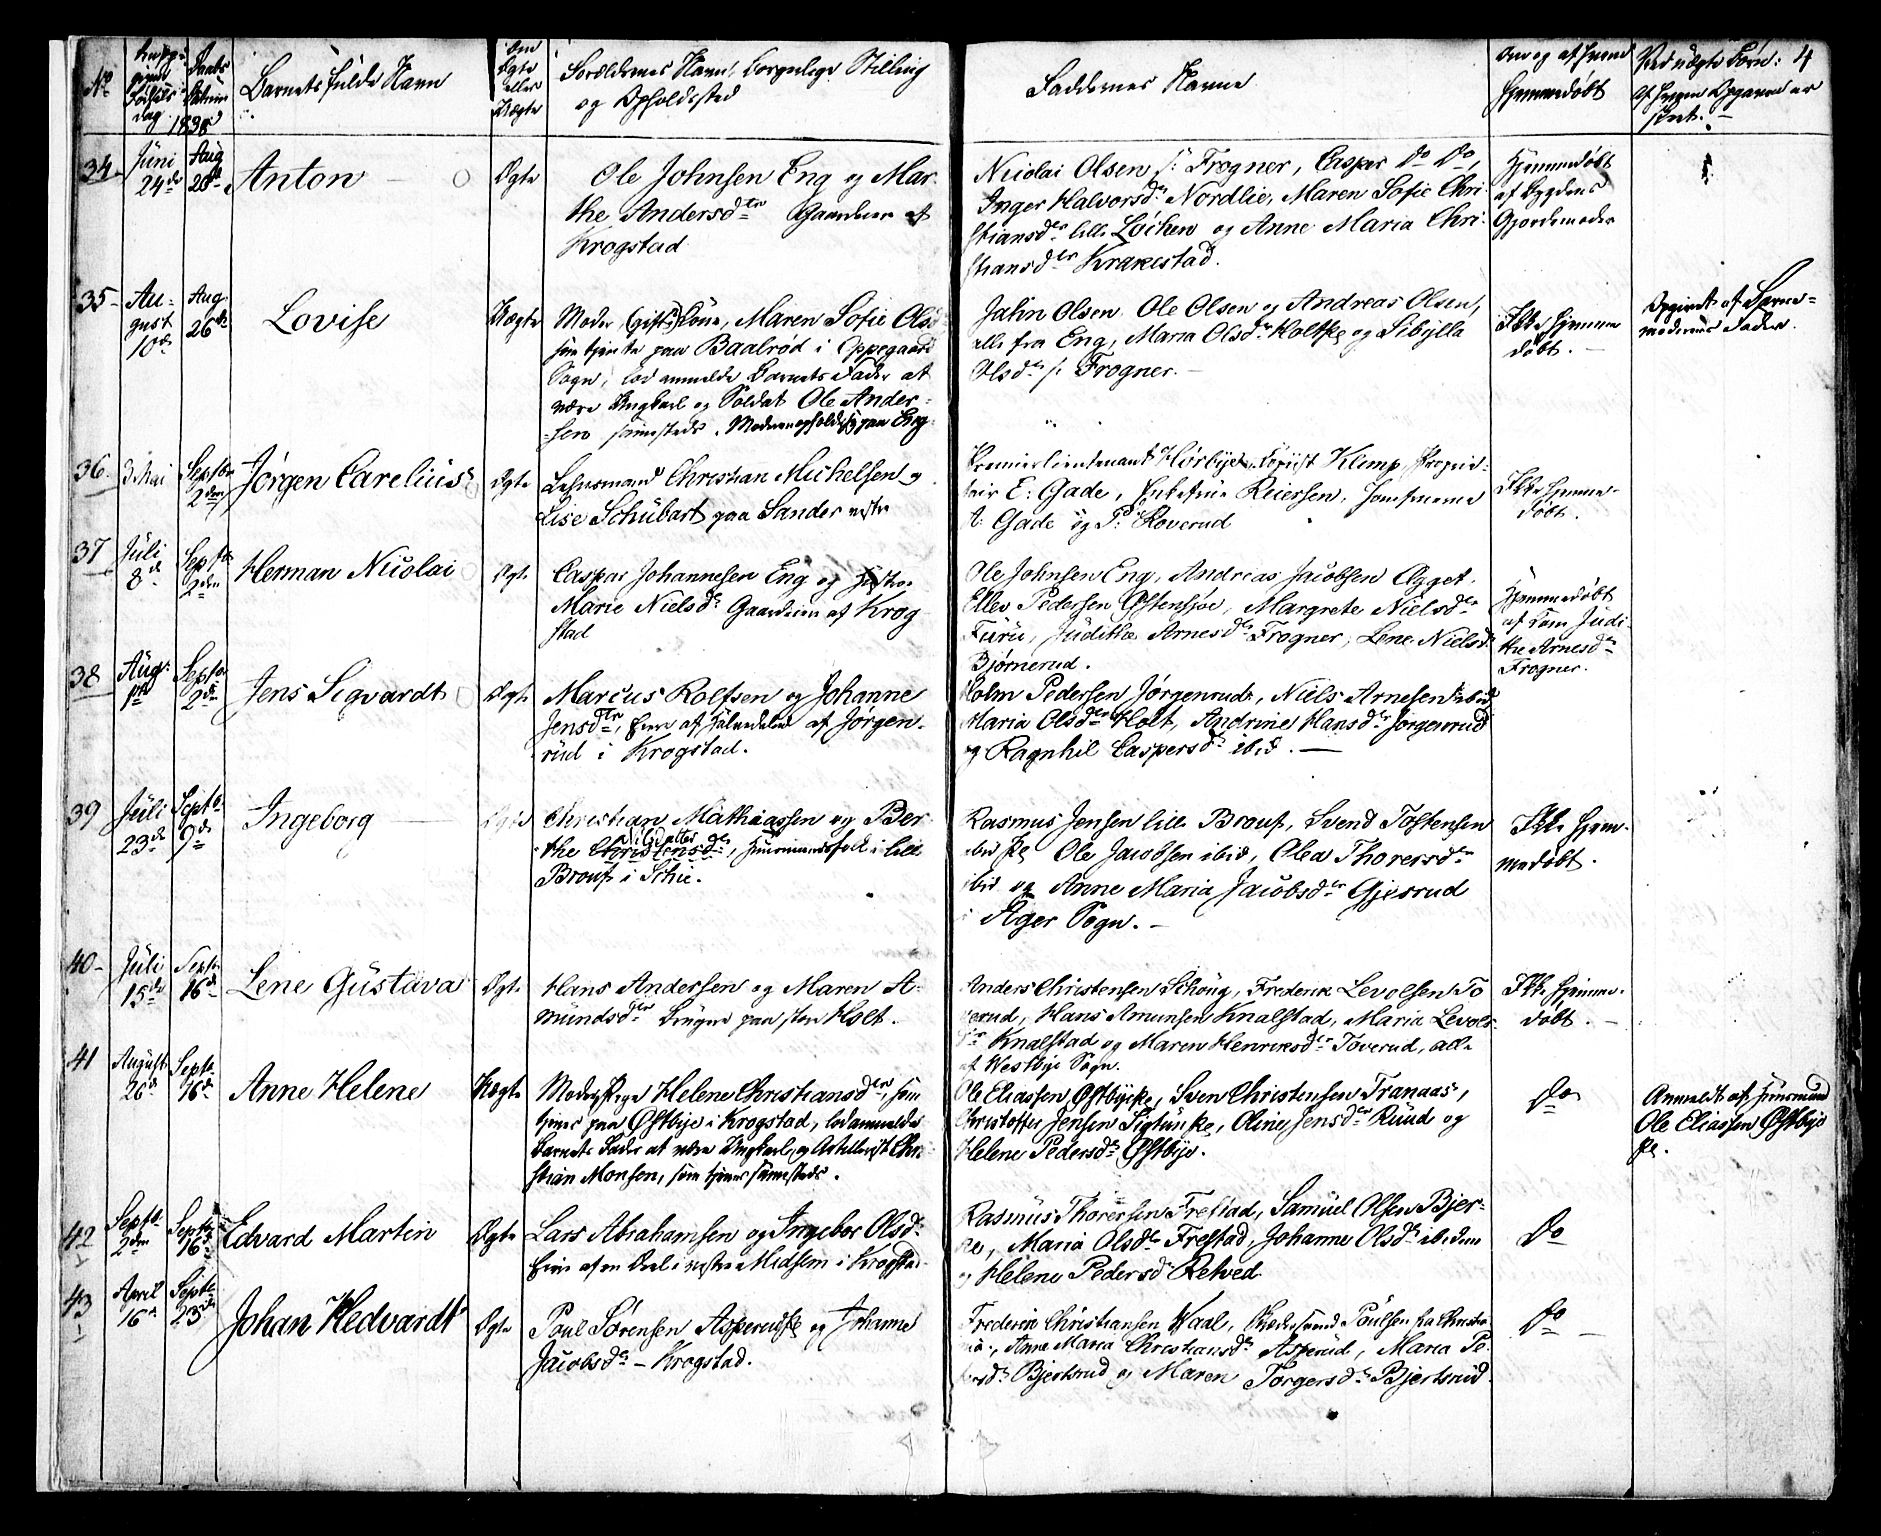 No
Opgi-
given
Fødsels
dag
Daabs
Datum
1838
Barnets fulde Navn
Om
Ægte
eller
Uægte
Forældrenes Navn, borgerlige Stilling
og Opholdssted
Faddernes Navne
Om og af hvem
hjemmedøbt
Ved uægte Børn: 4
af hvem Opgaven er
skeet. –
34
Juni
24de
Aug
26de
Anton
Ægte
Ole Johnsen Eng og Mar-
the Andersdter Gaardeier af
Krogstad
Nicolai Olsen s: Frogner, Casper Do Do,
Inger Halvorsdr Nordlie, Maren Sofie Chri-
stiansdr lille Løiken og Anne Maria Chri-
stiansdtr Krakestad.
Hjemmedøbt
af Bygdens
Gjordemoder
35
Au-
gust
10de
Aug.
26de
Lovise
Uægte
Moder (gift) Kone, Maren Sofie Olsd
som tjente paa Baalrød i Oppegaard
Sogn, lod anmelde Barnets Fader at
være Ungkarl og Soldat Ole Ander-
sen sammesteds. Moderen opholder sig paa Eng.
Jahn Olsen, Ole Olsen og Andreas Olsen,
alle fra Eng, Maria Olsdr Holtke og Sibylla
Olsdr s: Frogner. –
Ikke hjemme
døbt. –
Opgivet af Barne-
moderens Fader.
36.
3 Mai
Septbr
2den
Jørgen Carelius
Ægte
Lensmand Christian Michelsen og
Lise Schübart paa Sander vestre
Premierlieutenant Hørbye, Copist Klimp, Proprie-
tair E: Gade, Enkefrue Reiersen, Jomfruerne
A: Gade og P: Roverud
Ikke hjemme-
døbt.
37
Juli
8de
Septbr
2den
Herman Nicolai
Ægte
Caspar Johannesen Eng og Hustru
Marie Nielsdr Gaardeiere af Krog-
stad
Ole Johnsen Eng, Andreas Jacobsen Ægget,
Ellev Pedersen Østensjøe, Margrete Nielsdr
Furu, Judithe Arnesdr Frogner, Lene Nielsd:
Bjørnerud.
Hjemmedøbt
af Kone Judi-
the Arnesdr
Frogner.
38
Aug:
1ste
Septbr
2den
Jens Sigvardt
Ægte
Marcus Rolfsen og Johanne
Jensdtr, Eier af Halvedelen af Jørgen-
rud i Krogstad.
Holm Pedersen Jørgenrud, Niels Arnesen ibid
Maria Olsdtr Holt, Andrine Hansdr Jørgenrud
og Ragnhil Caspersdr ibid. –
39
Juli
23de
Septb
9de
Ingeborg
Ægte
Christian Mathiassen og Ber-
the Christensdr, Huusmandsfolk i lille
Brouf i Schie.
Rasmus Jensen lille Brouf, Svend Tostensen
ibid Ole Jacobsen ibid, Olea Thorersdr
ibid og Anne Maria Jacobsdr Gjesrud
i Ager Sogn. –
Ikke hjem-
medøbt.
40
Juli
15de
Septb
16de
Lene Gustava
Ægte
Hans Andersen og Maren A-
mundsdtr Brugere paa store Holt.
Anders Christensen Schoug, Frederik Levolsen To
verud, Hans Amunsen Knalstad, Maria Levols
dr Knalstad og Maren Henriksdr Toverud, alle
af Westbye Sogn.
Ikke hjemme-
døbt. –
41
August
26de
Septb
16de
Anne Helene
Uægte
Moder Pige Helene Christiansdtr, som
tjener paa Østbye i Krogstad, lod anmelde
Barnets Fader at være Ungkarl og Artillerist Chri-
stian Monsen, som tjener sammesteds.
Ole Eliassen Østbye, Sven Christensen Tranaas,
Christoffer Jensen, Oline Jensdr Ruud og
Helene Pedersdr Østbye.
Do
Anmeldt af Huusmand
Ole Eliassen Østbye
42
Septb
2den
Septb
16de
Edvard Martin
Ægte
Lars Abrahamsen og Ingebor Olsdr
Eier af en Deel i vestre Midsem i Krogstad.
Rasmus Thorersen Frestad, Samuel Olsen Bjer-
ke, Maria Olsdr Frestad, Johanne Olsdr ibidem
og Helene Pedersdr Retved
Do
43
April
16de
Septb
23de
Johan Hedvardt
Ægte
Poul Sørensen Asperud og Johanne
Jacobsdr – Krogstad.
Frederik Christiansen Waal, Poulsen fra Christia
nia, Anne Maria Christiansdr Asperud, Maria Pe-
dersdr Bjertsrud og Maren Torgersdr Bjertsrud.
Do –